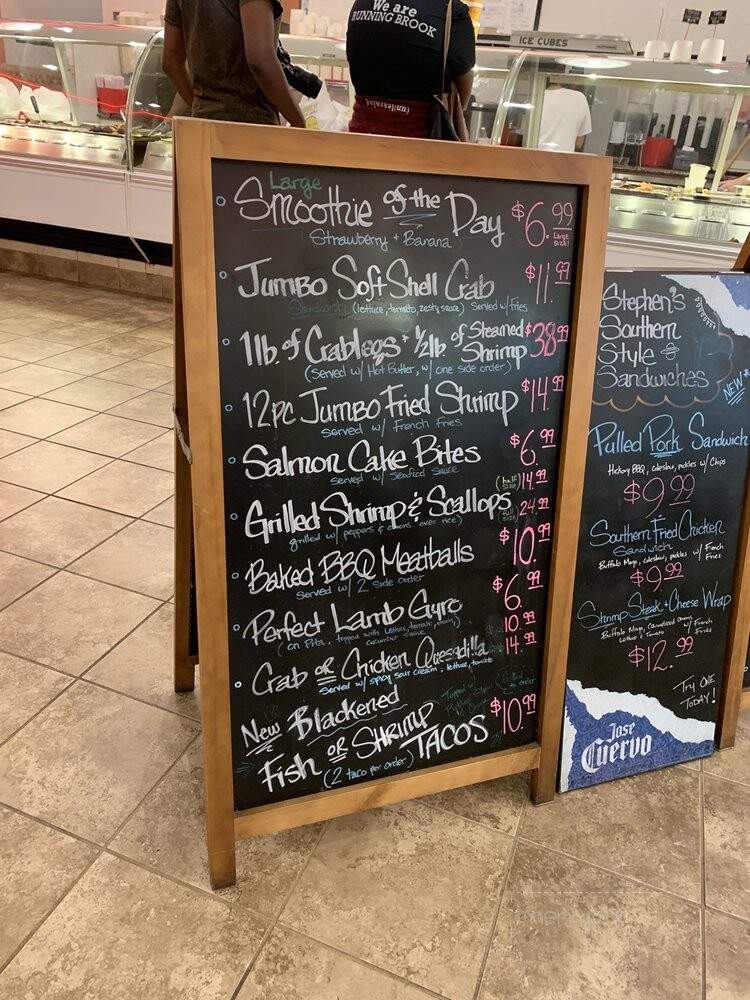 We are
RUNNING BROOK
(un)learning
ICE CUBES
Large
Smoothie of the Day $6.99
Strawberry + Banana
Large size!
Jumbo Soft Shell Crab $11.99
Sandwich (lettuce, tomato, zesty sauce) Served w/ fries
1lb. of Crablegs + 1/2lb. of Steamed Shrimp $38.99
(Served w/ Hot Butter, w/ one side order)
12pc Jumbo Fried Shrimp $14.99
served w/ French Fries
Salmon Cake Bites $6.99
served w/ Seafood Sauce
(half size) 14.99
Grilled Shrimp & Scallops 24.99
(full size)
grilled w/ peppers & onions over rice)
Baked BBQ Meatballs $10.99
Served w/ 2 side order
Perfect Lamb Gyro $6.99
(on Pita, topped with lettuce, tomato, onion, cucumber sauce
10.99
Crab or Chicken Quesadilla 14.99
Served w/ spicy sour cream, lettuce, tomato
New Blackened
Fish or Shrimp Tacos $10.99
(2 taco per order)
Stephen's
Southern
Style
Sandwiches
NEW
Pulled Pork Sandwich
Hickory BBQ, coleslaw, pickles w/ Chips
$9.99
Southern Fried Chicken
Sandwich
Buffalo Mayo, coleslaw, pickles w/ French Fries
$9.99
Shrimp Steak & Cheese Wrap
Buffalo Mayo, Caramelized Onions w/ French Fries
Lettuce & Tomato
$12.99
Try One
Today!
Jose
Cuervo